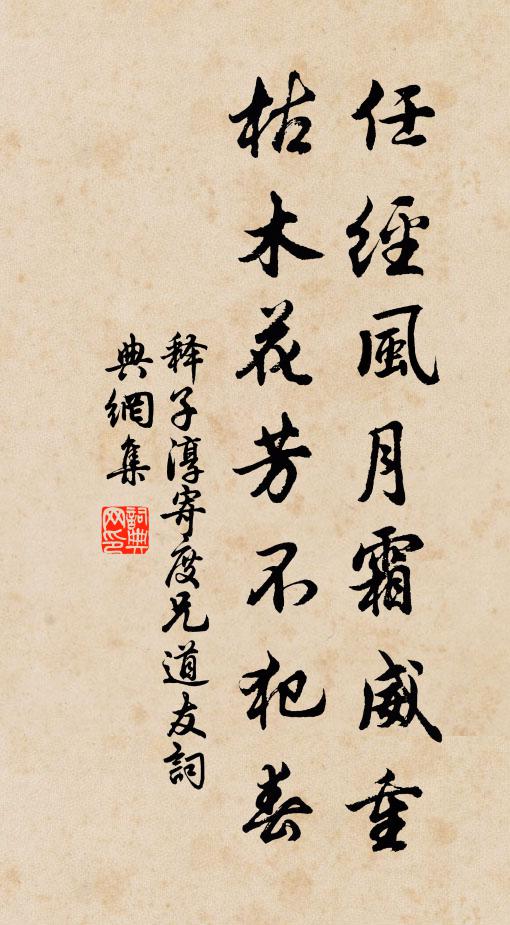 任經風月霜威重
枯木花芳不犯春
释子淳寄度兄道友詞
典網集
詞典網印